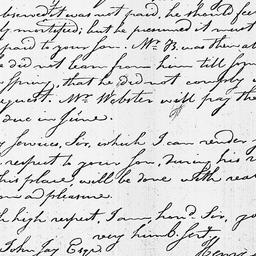 observed it was not paid, he should feel
ly mortified; but he presumed it most
paid to your Son. Mr. B. was then at
he did not learn from him till
Spring, that he did not comply w
equest. Mr. Webster will pay the
due in June.
y Services, Sir, which I can render y
respect to your Son, during his r
this place, will be done with rea
on a pleasure.
th high respect, I am, hond. Sir, yo
very humb. Sert.
John Jay Esqr.
Henry